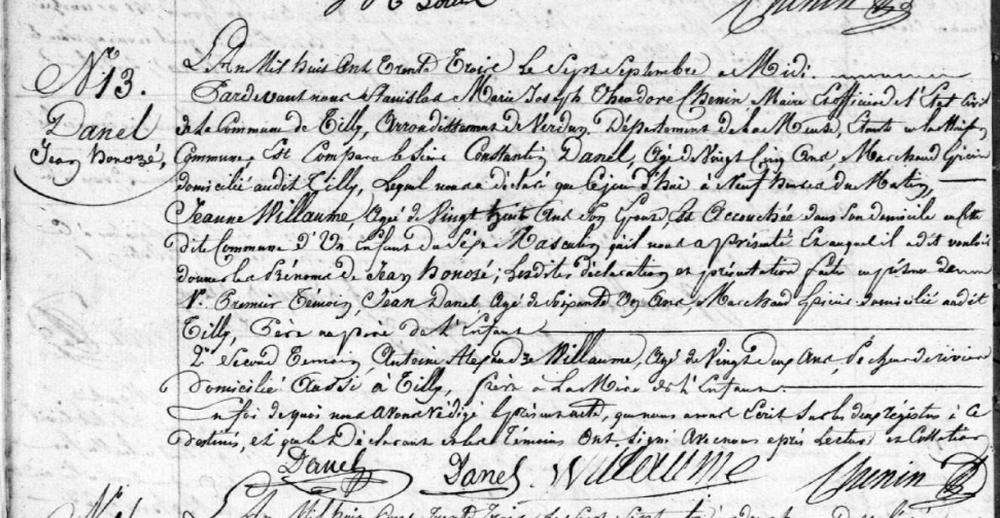 Chenin
N° 13.
Danel
Jean honoré,
L'An Mil huit Cent Trente Trois Le Sept Septembre a Midi.
Pardevant nous Stanislas Marie Joseph Théodore Chenin Maire Et officier de l'Etat Civil
de La Commune de Tilly, Arrondissement de Verdun Département de la Meuse, Etante en la Maison
Commune, Est Comparu le Sieur Constantin Danel, Agé de Vingt Cinq Ans, Marchand Epicier
domicilié audit Tilly, Lequel nous a déclaré que Cejourd'hui à Neuf heures du Matin,
Jeanne Willaume Agé de Vingt huit Ans Son Epouse, Est Accouchée dans Son domicile en cette
dite Commune d'Un Enfant du Sexe Masculin qu'il nous a présenté Et auquel il a dit vouloir
donner les Prénoms de Jean honoré; Lesdites déclaration et présentation faite en présence de
1°. Premier Témoin, Jean Danel Agé de Soixante Un Ans, Marchand Epicier domicilié audit
Tilly, Père au père de l'Enfant
2°. Second Temoin Antoine Alexandre Willaume, Agé de Vingt deux Ans, Pecheur de rivière
Domicilié Aussi à Tilly, frère à La Mère de l'Enfant.
En foi de quoi nous avons rédigé le présent acte, que nous avons Ecrit Sur les deux régistres à Ce
destinés, et que le déclarant et les Témoins Ont Signé Avec nous après Lecture et Collation
Danel Danel Willaume Chenin
L'An Mil huit Cent Trente Trois